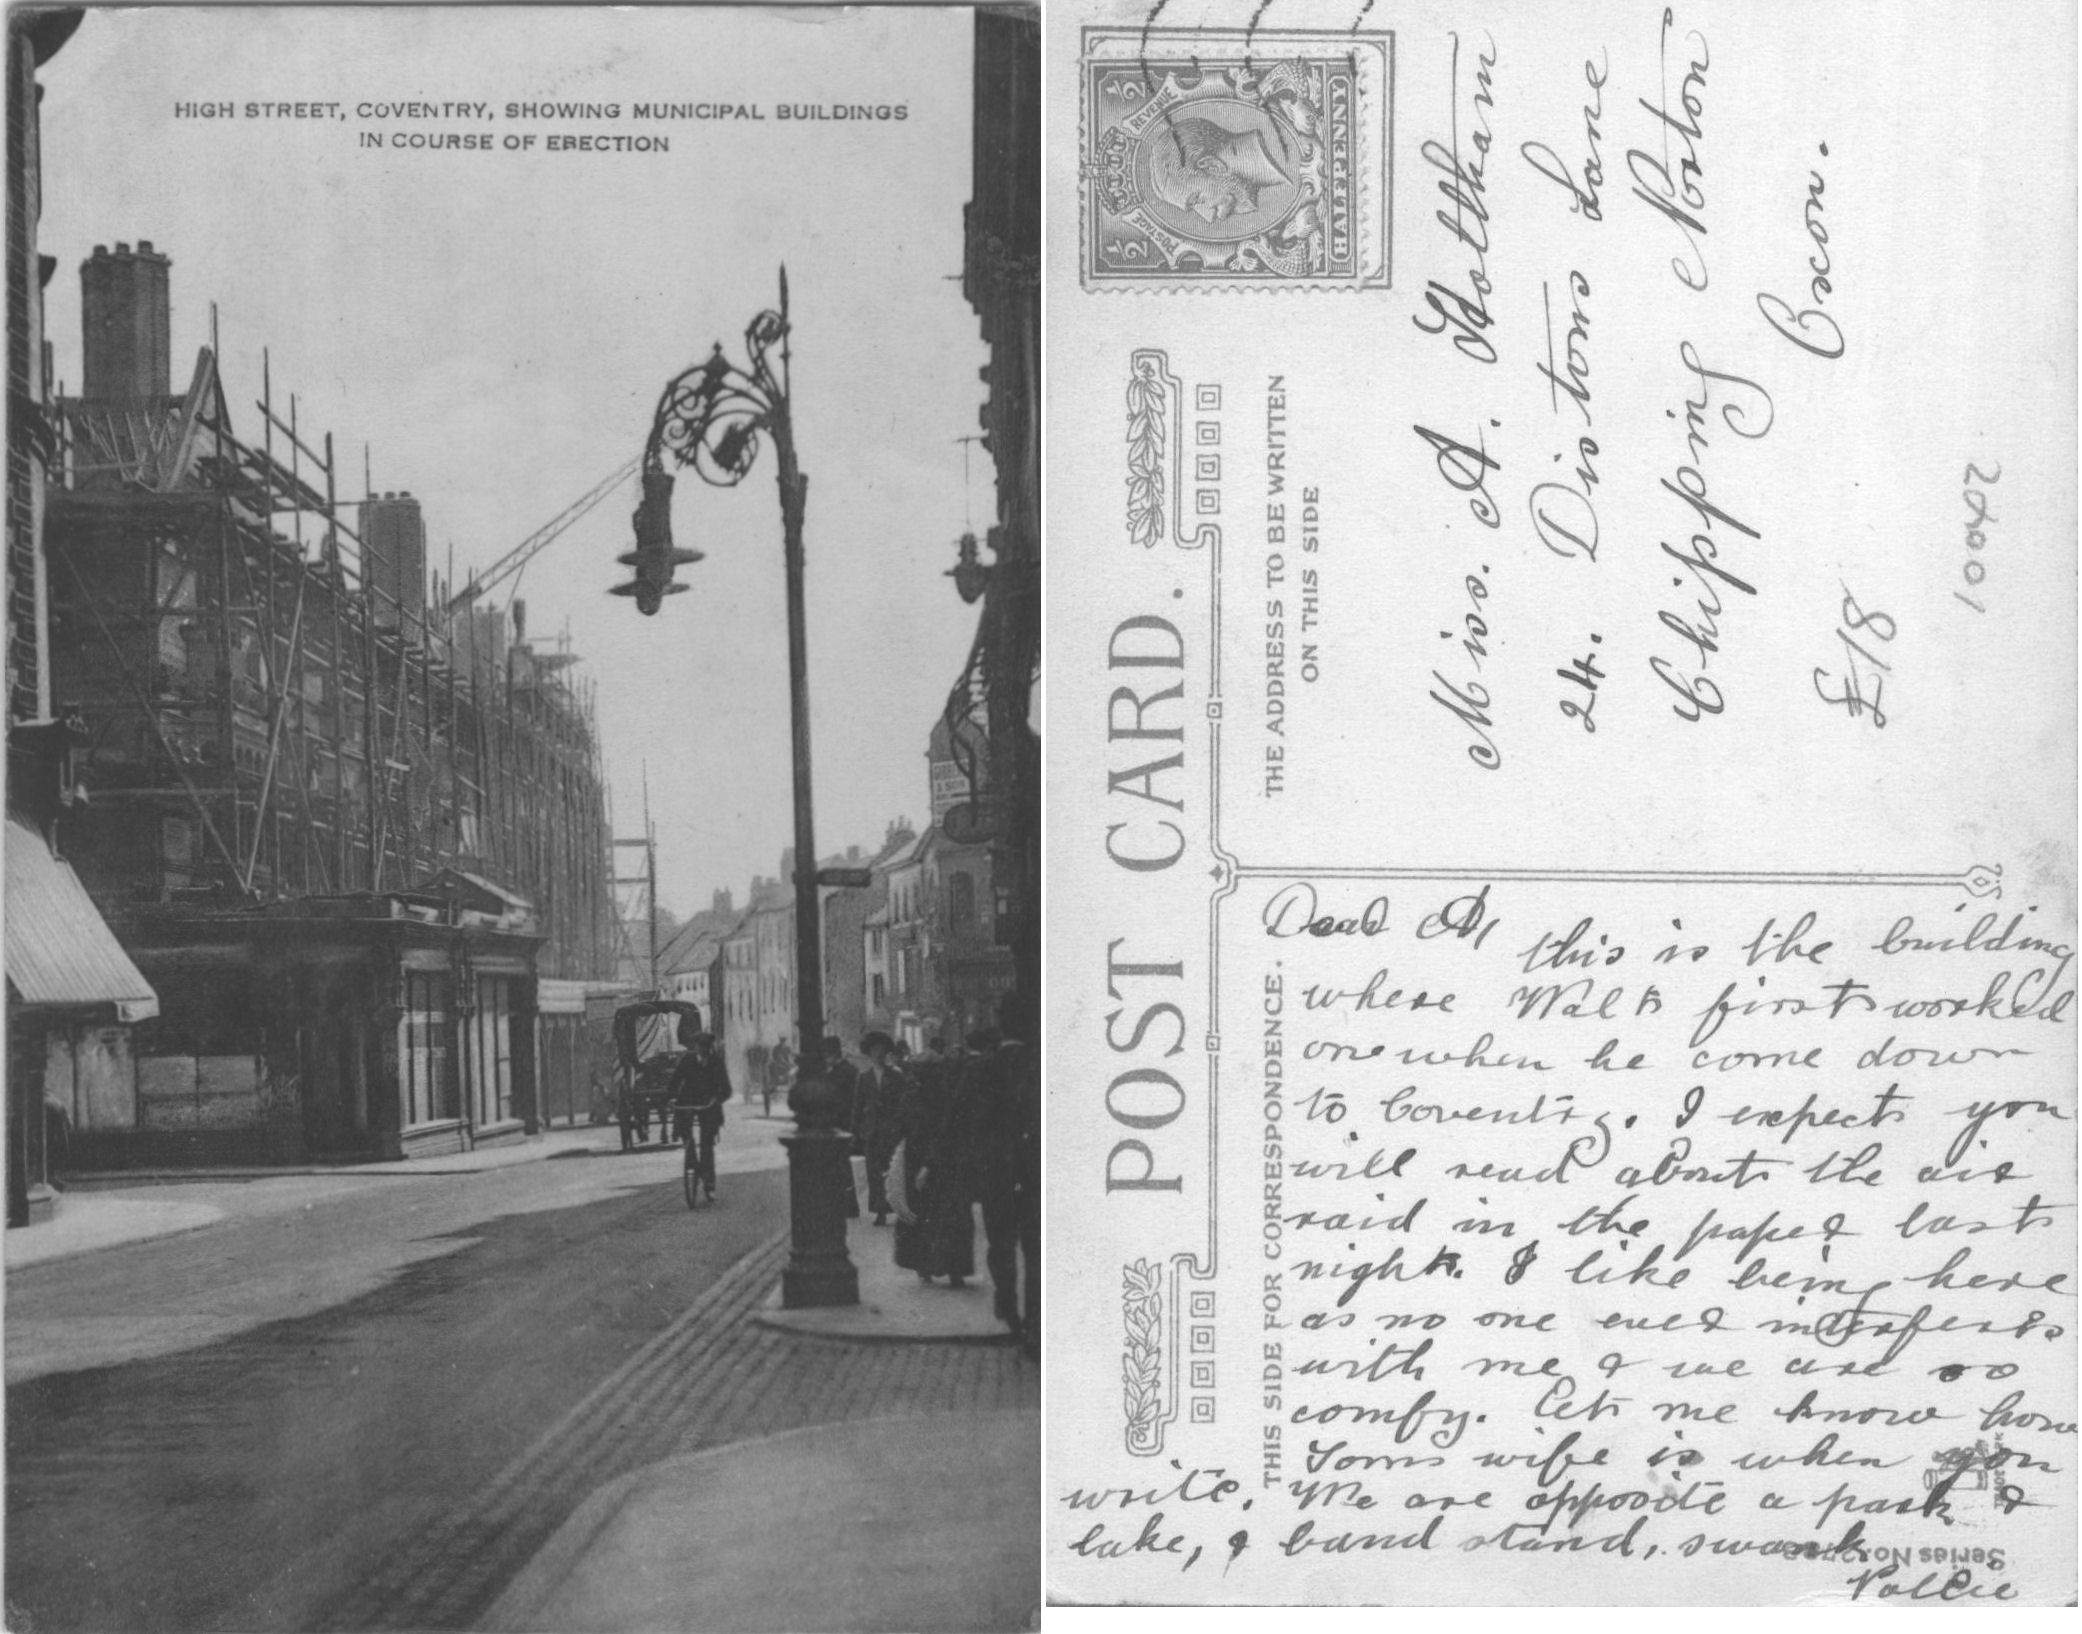 HIGH STREET, COVENTRY, SHOWING MUNICIPAL BUILDINGS
IN COURSE OF ERECTION
& SON
POST CARD.
THE ADDRESS TO BE WRITTEN
ON THIS SIDE
THIS SIDE FOR CORRESPONDENCE.
POSTAGE
REVENUE
1/2
1/2
HALFPENNY
Miss. A. Hotham
24. Distons Lane
Chipping Norton
Oxon.
£18
Dear A, this is the building
where Walt first worked
one when he come down
to Coventry. I expect you
will read about the air
raid in the paper last
night. I like being here
as no one ever interferes
with me & we are so
comfy. Let me know how
Toms wife is when you
write. We are opposite a park &
lake, & band stand, swank
Pollie
Series No.